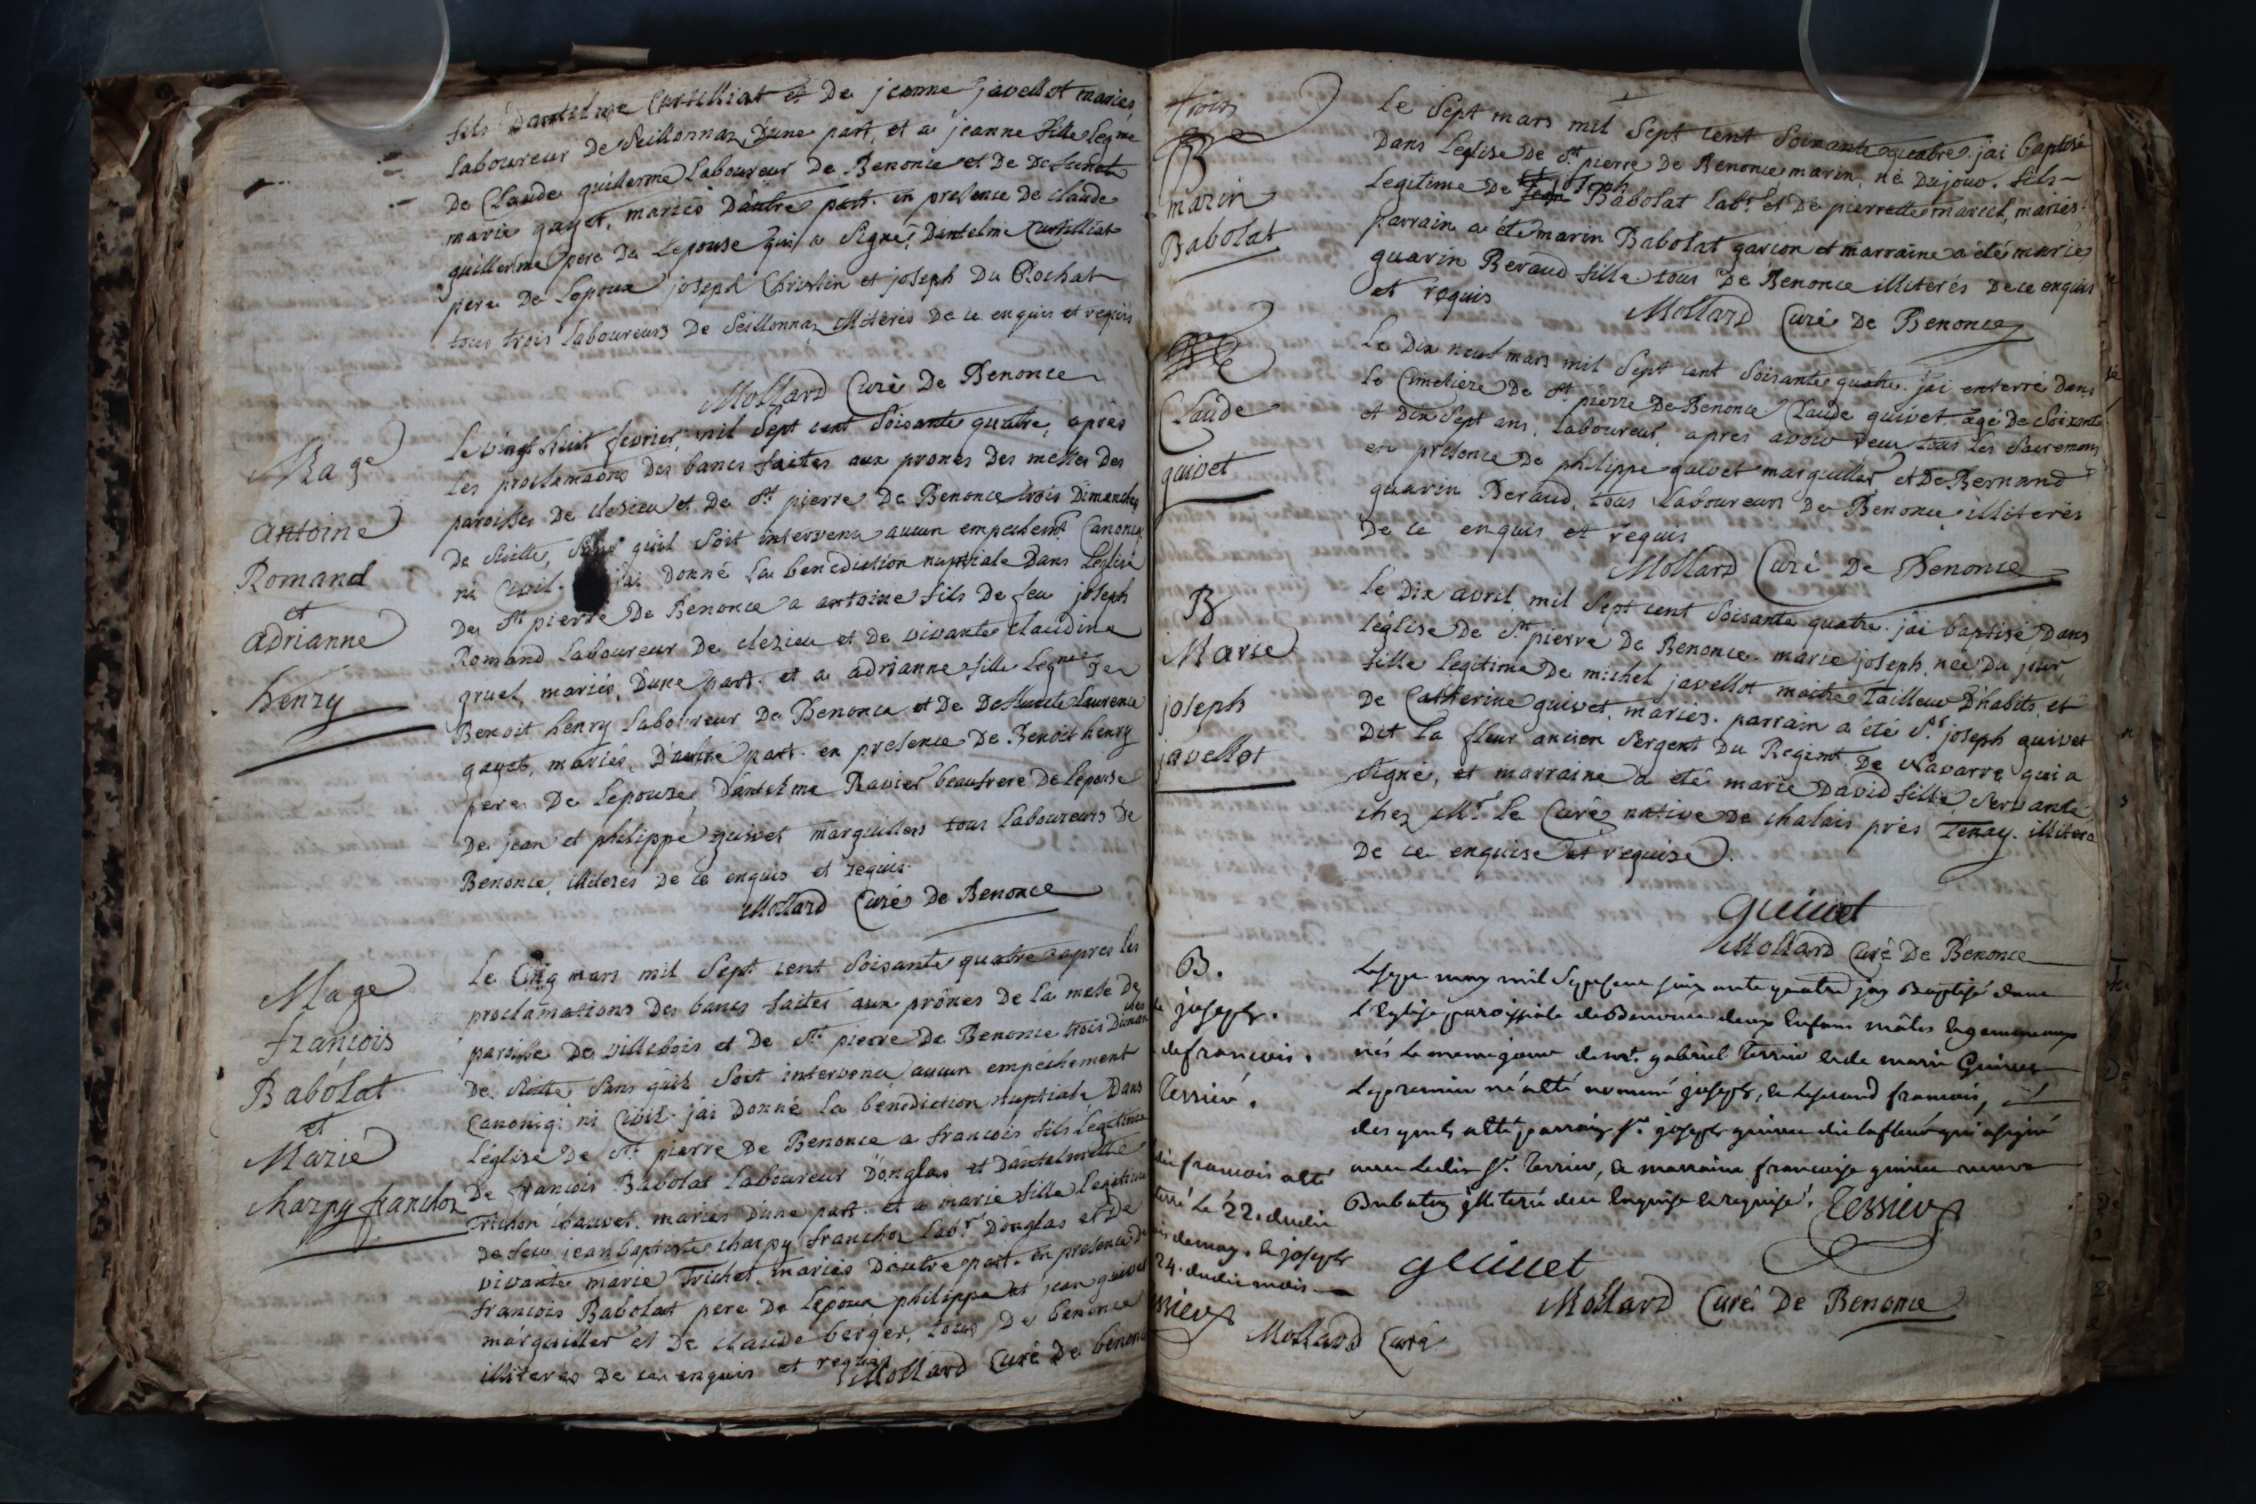 fils D'antelme Curtilliat et De jeanne javellot mariés
laboureur De Seillonnaz D'une part, et a jeanne fille legme
De Claude guillerme laboureur De Benonce et De Defunte
marie gayet, mariés D'autre part. en presence De claude
guillerme pere De Lepouse qui a Signé, D'antelme Curtilliat
pere De Lepoux joseph Christin et joseph Du Rochat
tous trois laboureurs De Seillonnaz illiterés De ce enquis et requis
Mollard Curé De Benonce
Mage
antoine
Romand
et
adrianne
henry
Le vingt huit fevrier mil Sept cent Soisante quatre, après
les proclamaõns Des bancs faites aux prones Des messes Des
paroisses De clezieu et De St pierre De Benonce trois Dimanches
De Suitte, Sans qu'il Soit intervenu aucun empechemt Canoniq
ni Civil. j'ai Donné la benediction nuptiale Dans l'eglise
De St pierre De Benonce a antoine fils De feu joseph
Romand laboureur De clezieu et De vivante claudine
gruel, mariés, D'une part. et a adrianne fille legme De
Benoit henry laboureur De Benonce et De Defunte laurence
gayet, mariés, D'autre part. en presence De Benoit henry
pere De Lepouze, D'antelme Ravier beaufrere De l'epouse
De jean et philippe quivet marguilliers tous laboureurs De
Benonce, illiterés De ce enquis et requis
Mollard Curé De Benonce
Mage
françois
Babolat
et
Marie
charpy franchoz
Le Cinq mars mil Sept cent Soisante quatre apres les
proclamations Des bancs faites aux prônes De la messe De
paroisse De villebois et De St pierre De Benonce trois Dimanches
De Suitte Sans qu'il Soit intervenu aucun empêchement
Canoniq: ni Civil. j'ai Donné la bénédiction nuptiale Dans
l'église De St pierre De Benonce a françois fils légitime
De françois Babolat laboureur D'onglas et D'antelmette
Trichon chauvet. mariés D'une part. et a marie fille legitime
De feu jean baptiste charpy franchoz labr D'onglas et De
vivante marie Trichet. mariés D'autre part. en presence De
françois Babolat pere De lépoux philippe et jean quivet
marguillier et De claude berger, tous De benonce
illiterés De ce enquis et requis Mollard Curé De benonce
trois
B
marin
Babolat
Le Sept mars mil Sept cent Soixante quatre. j'ai baptisé
Dans L'eglise De St pierre De Benonce marin, né Dujour. fils
Legitime De joseph Babolat labr. et De pierrette marcel, mariés.
parrain a été marin Babolat garçon et marraine a été marie
quarin Beraud fille tous De Benonce illiterés De ce enquis
et requis
Mollard Curé De Benonce
Claude
quivet
Le Dix neuf mars mil Sept cent Soisante quatre. j'ai enterré Dans
le Cimetiere De St pierre De Benonce Claude quivet. agé De Soixante
et Dix Sept ans, laboureur, apres avoir reçu tous les Sacremens
en presence De philippe quivet marguillier et De Bernand
quarin Beraud, tous laboureurs De Benonce, illiterés
De ce enquis et requis
Mollard Curé De Benonce
B
Marie
joseph
javellot
Le Dix avril mil Sept cent Soisante quatre. j'ai baptisé Dans
l'église De St pierre De Benonce. marie joseph, née Du jour,
fille Legitime De michel javellot maitre Tailleur D'habits, et
De Catherine quivet, mariés. parrain a été Sr. joseph quivet
Dit La fleur ancien Sergent Du Regimt. De Navarre qui a
Signé, et marraine a été marie David fille, Servante
chez Mr. le Curé native De chalais près Tenay. illiterée
De ce enquise et requise.
quivet
Mollard Curé De Benonce
B.
joseph.
de francois.
Tessier.
Le sept may mil Sept cent soixante quatre j'ay Baptisé dans
l'Eglise paroissiale de Benonce deux Enfans mâles et gemeaux
nés le meme jour de mr. gabriel Terrier et de marie Quivet
Le premier né a été nommé joseph, et le second francois,
des quels a été parrain Sr. joseph quivet dit lafleur qui a signé
avec ledit Sr. Terrier, et marraine francoise quivet veuve
Babolaz illiterée de ce Enquise et requise. Tessier
dit francois a été
terré le 22. dudit
mois de may. et joseph
24. dudit mois
quivet
Mollard Curé De Benonce
Mollard Curé